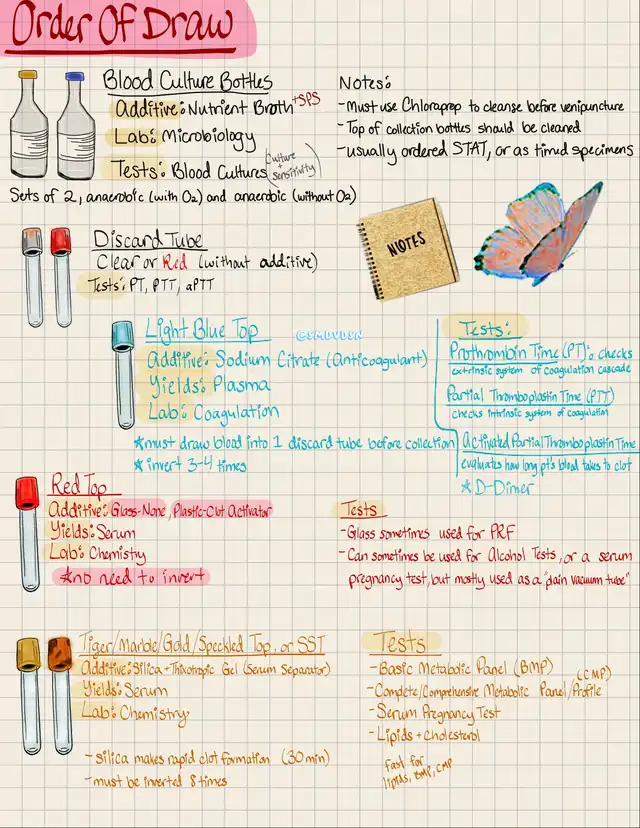 Order Of Draw
Blood Culture Bottles
Additive: Nutrient Broth +SPS
Lab: Microbiology
Tests: Blood Cultures (culture + sensitivity)
Sets of 2, anaerobic (with O2) and anaerobic (without O2)
Notes:
-Must use Chloraprep to cleanse before venipuncture
-Top of collection bottles should be cleaned
-usually ordered STAT, or as timed specimens
NOTES
Discard Tube
Clear or Red (without additive)
Tests: PT, PTT, aPTT
Light Blue Top
Additive: Sodium Citrate (Anticoagulant)
Yields: Plasma
Lab: Coagulation
*must draw blood into 1 discard tube before collection
*invert 3-4 times
Tests:
Prothrombin Time (PT): checks
extrinsic system of coagulation cascade
Partial Thromboplastin Time (PTT)
checks intrinsic system of coagulation
Activated Partial Thromboplastin Time
evaluates how long pt's blood takes to clot
*D-Dimer
Red Top
Additive: Glass-None, Plastic-Clut Activator
Yields: Serum
Lab: Chemistry
*no need to invert
Tests
-Glass sometimes used for PRF
-Can sometimes be used for Alcohol Tests, or a serum
pregnancy test, but mostly used as a "plain vacuum tube"
Tiger/Marble/Gold/Speckled Top, or SST
Additive: Silica + Thixotropic Gel (Serum Separator)
Yields: Serum
Lab: Chemistry
-silica makes rapid clot formation (30 min)
-must be inverted 8 times
Tests
-Basic Metabolic Panel (BMP)
-Complete/Comprehensive Metabolic Panel/Profile (CMP)
-Serum Pregnancy Test
-Lipids + Cholesterol
fast for
lipids, BMP, CMP